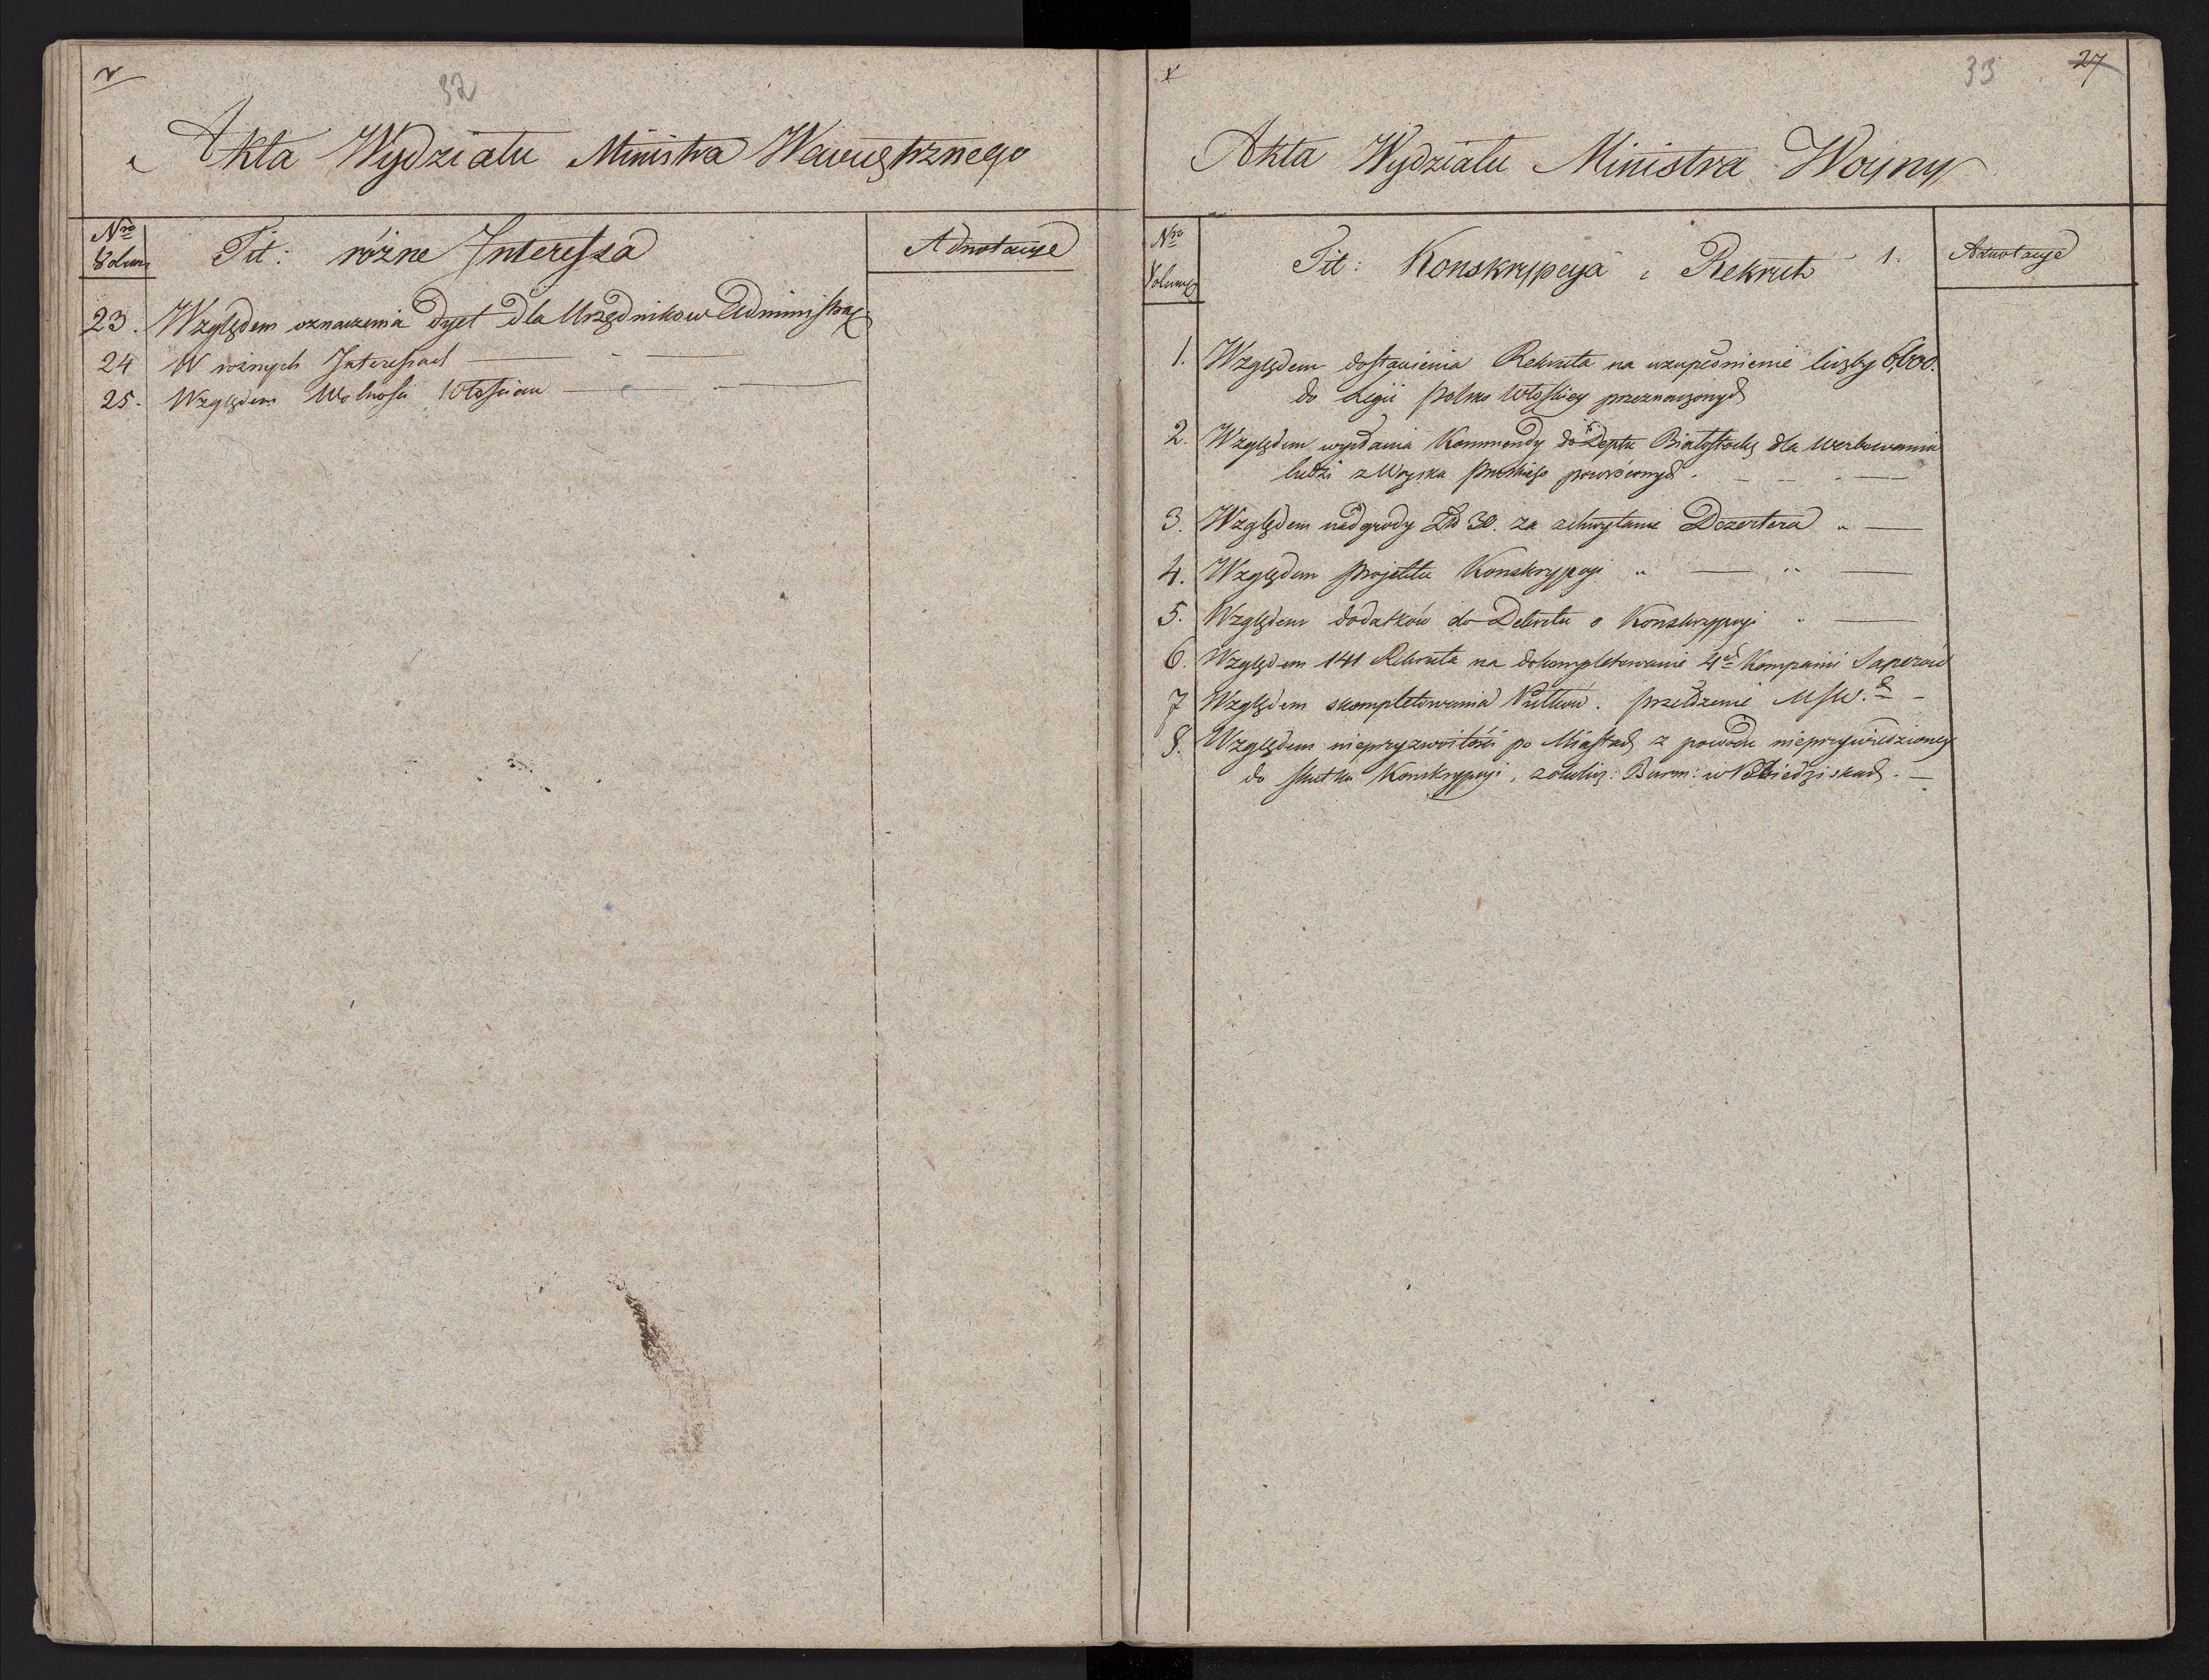 32
Akta Wydziału Ministra Wewnętrznego
Nro Volum
Tit: różne Interessa
Adnotacye
23. Względem oznaczenia dyet dla Urzędnikow Administrac:
24 W roznych Interessach
25. Względem Wolności Włościan
33 27
Akta Wydziału Ministra Woyny
Nro Volum
Tit: Konskrypcya i Rekrut 1.
Adnotacye
1. Względem dostawienia Rekruta na uzupełnienie liczby 6,000.
do Legii Polsko Włoskiey przeznaczonych
2. Względem wysłania Kommendy do Deptu Białostock: dla werbowania
ludzi z Woyska pruskiego powróconych.
3. Względem nadgrody Zł 30. za schwytanie Dezertera
4. Względem projektu Konskrypcyi
5. Względem dodatków do Dekretu o Konskrypcyi
6. Względem 141 Rekruta na dokompletowanie 4ch Kompanii Saperów
7 Względem skompletowania Pułków.
8. Względem nieprzyzwoitości po Miastach z powodu nieprzywiedzioney
do skutku Konskrypcyi, Burm: w Pobiedziskach.